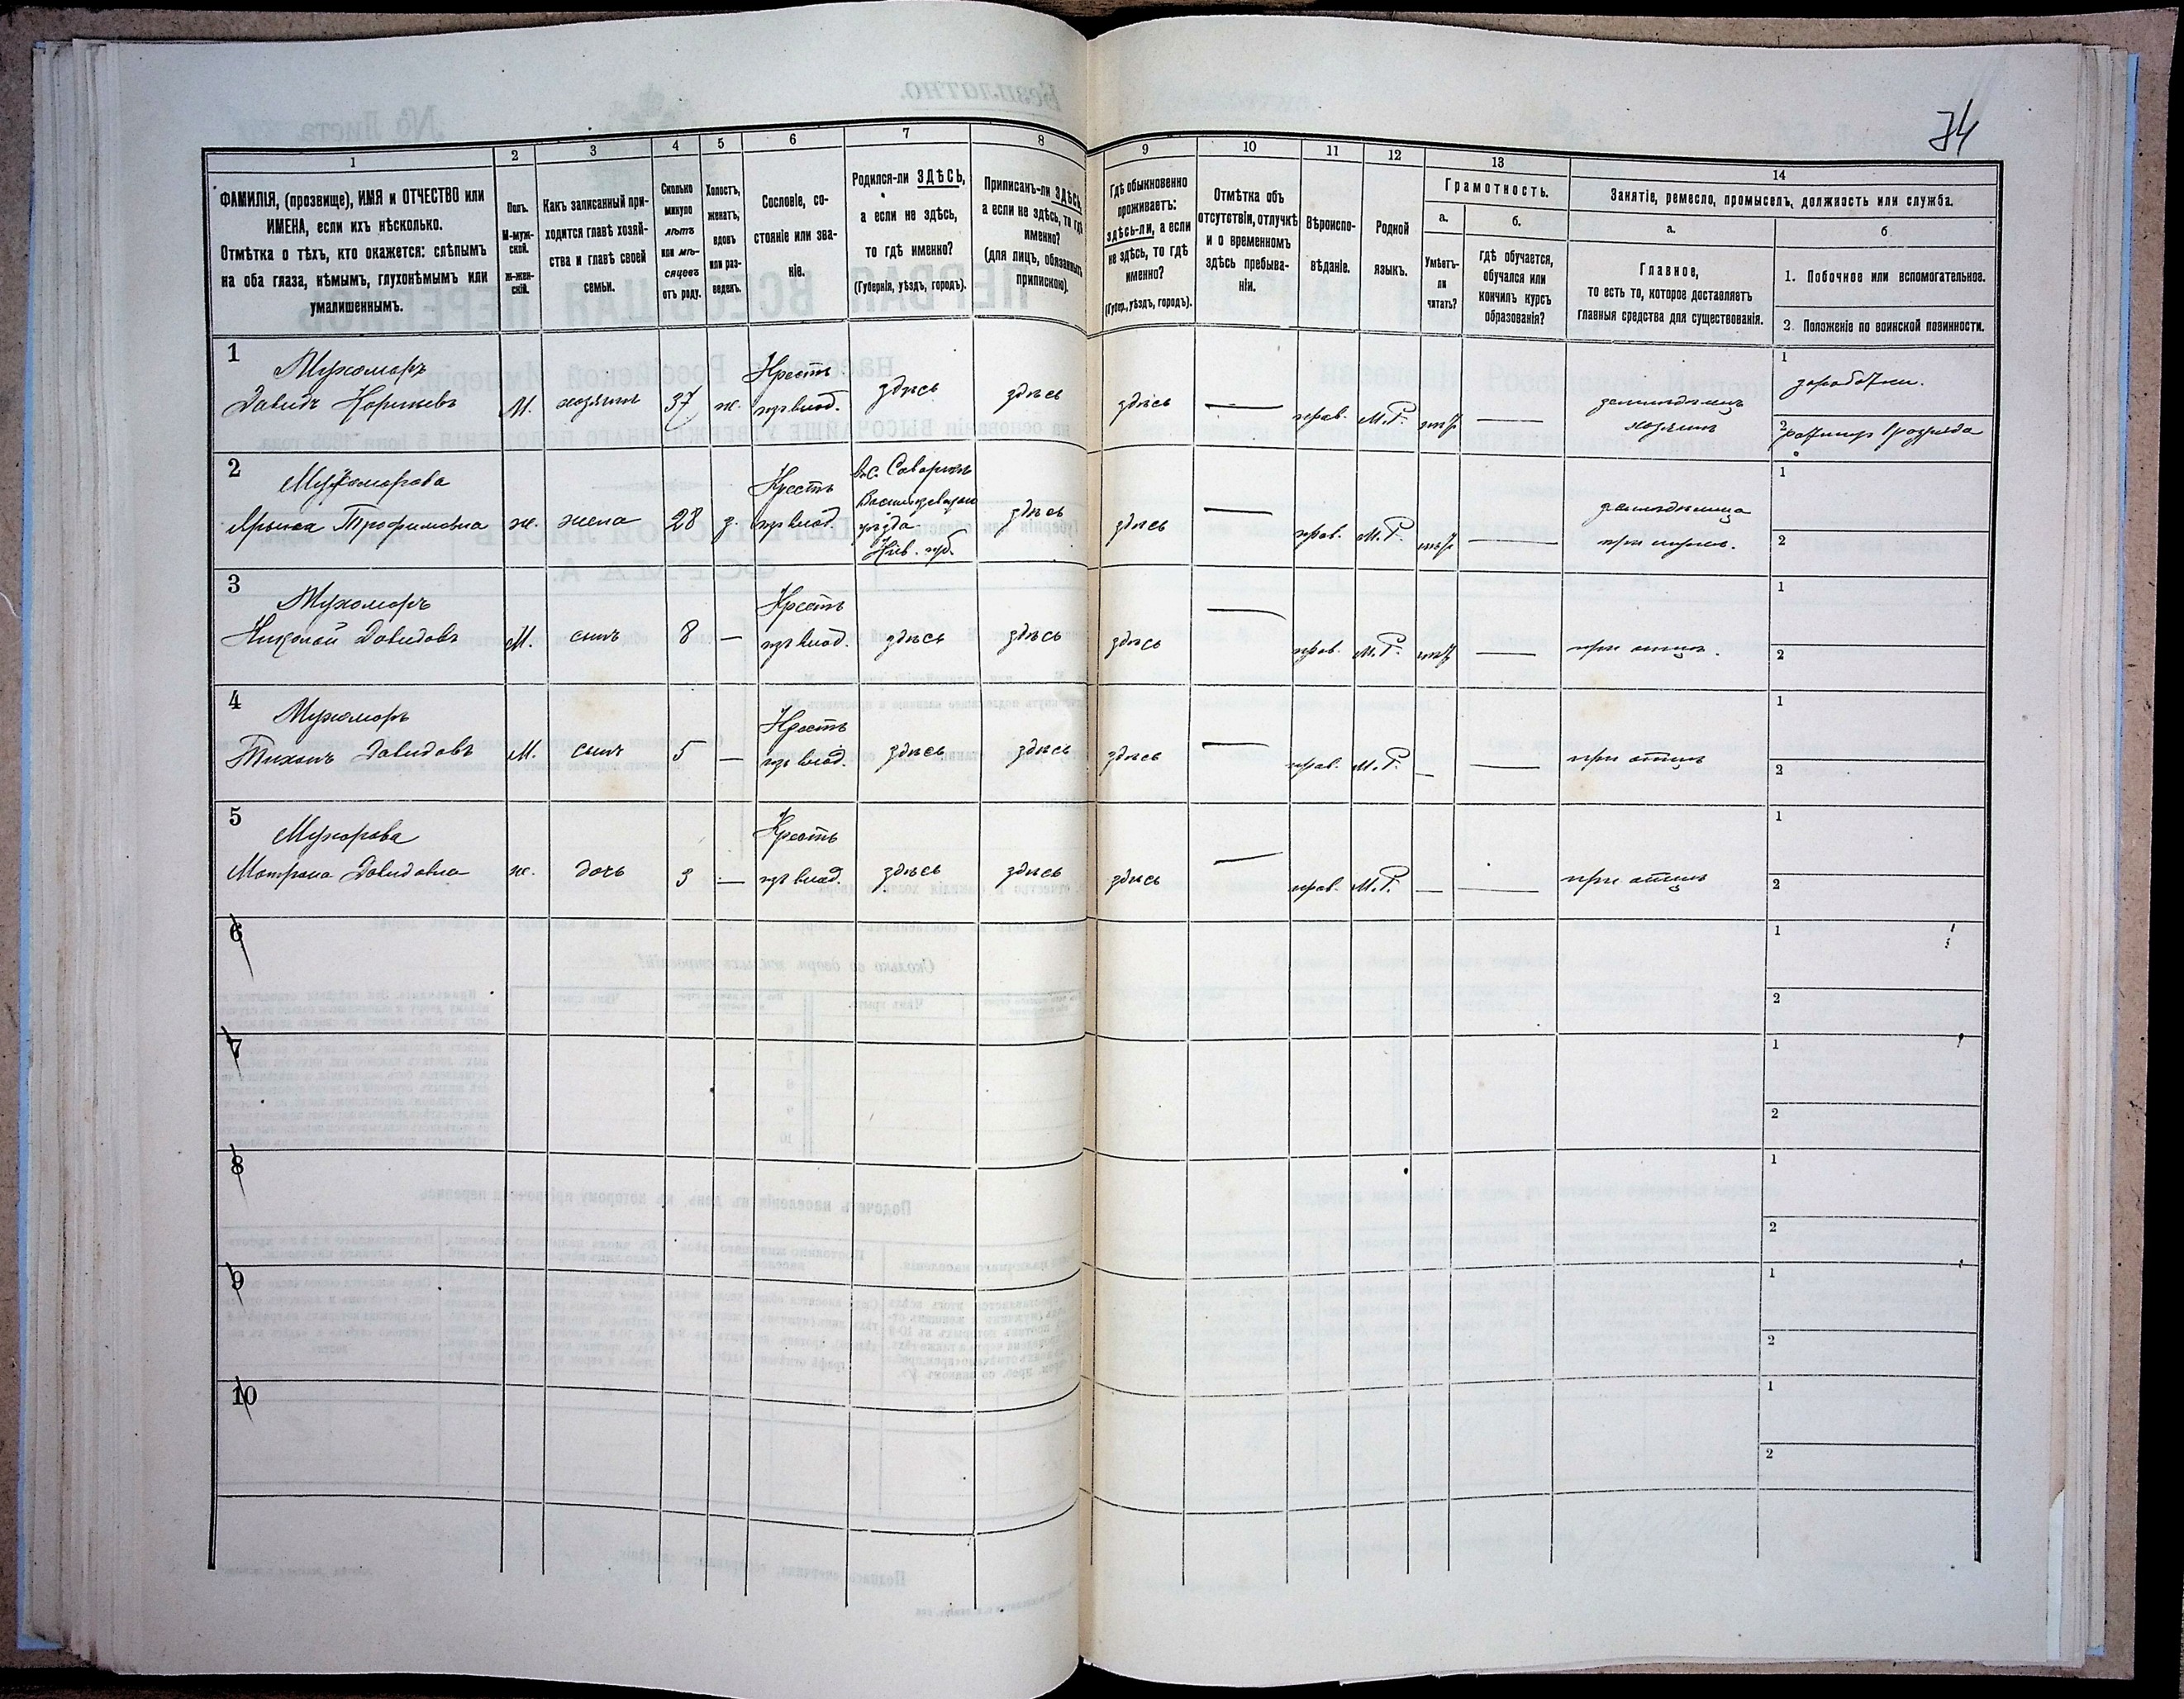 74
1
2
3
4
5
6
7
8
9
10
11
12
13
14
ФАМИЛІЯ, (прозвище), ИМЯ и ОТЧЕСТВО или
ИМЕНА, если ихъ нѣсколько.
Отмѣтка о тѣхъ, кто окажется: слѣпымъ
на оба глаза, нѣмымъ, глухонѣмымъ или
умалишеннымъ.
Полъ.
М-муж-
ской.
Ж-жен-
скій.
Какъ записанный при-
ходится главѣ хозяй-
ства и главѣ своей
семьи.
Сколько
минуло
лѣтъ
или мѣ-
сяцевъ
отъ роду.
Холостъ,
женатъ,
вдовъ
или раз-
веденъ.
Сословіе, со-
стояніе или зва-
ніе.
Родился-ли ЗДѢСЬ,
а если не здѣсь,
то гдѣ именно?
(Губернія, уѣздъ, городъ).
Приписанъ-ли ЗДѢСЬ,
а если не здѣсь, то гдѣ
именно?
(для лицъ, обязанныхъ
припискою).
Гдѣ обыкновенно
проживаетъ:
здѣсь-ли, а если
не здѣсь, то гдѣ
именно?
(Губер., уѣздъ, городъ).
Отмѣтка объ
отсутствіи, отлучкѣ
и о временномъ
здѣсь пребыва-
ніи.
Вѣроиспо-
вѣданіе.
Родной
языкъ.
Грамотность.
а.
Умѣетъ-
ли
читать?
б.
гдѣ обучается,
обучался или
кончилъ курсъ
образованія?
Занятіе, ремесло, промыселъ, должность или служба.
а.
Главное,
то есть то, которое доставляетъ
главныя средства для существованія.
б
1. Побочное или вспомогательное.
2. Положеніе по воинской повинности.
1
Мухоморъ
Давидъ
М. хозяинъ 37 ж.
Крестъ
изъ влад.
здѣсь здѣсь здѣсь — прав. М.Р. нѣтъ —
земледѣлецъ
хозяинъ
1
заработки.
2 ратникъ 1 разряда
2
Мухоморова
Трофимовна
ж. жена 28 з.
Крестъ
изъ влад.
уѣзда
Кіев. губ.
здѣсь здѣсь — прав. М.Р. нѣтъ —
земледѣлица
при мужѣ.
1
2
3
Мухоморъ
Николай Давидовъ
М. сынъ 8 —
Крестъ
изъ влад.
здѣсь здѣсь здѣсь — прав. М.Р. нѣтъ — при отцѣ.
1
2
4
Мухоморъ
Тихонъ Давидовъ
М. сынъ 5 —
Крестъ
изъ влад.
здѣсь здѣсь здѣсь — прав. М.Р. — — при отцѣ
1
2
5
Матрона Давидовна
ж. дочь 3 —
Крестъ
изъ влад.
здѣсь здѣсь здѣсь — прав. М.Р. — — при отцѣ
1
2
6
1
2
7
1
2
8
1
2
9
1
2
10
1
2